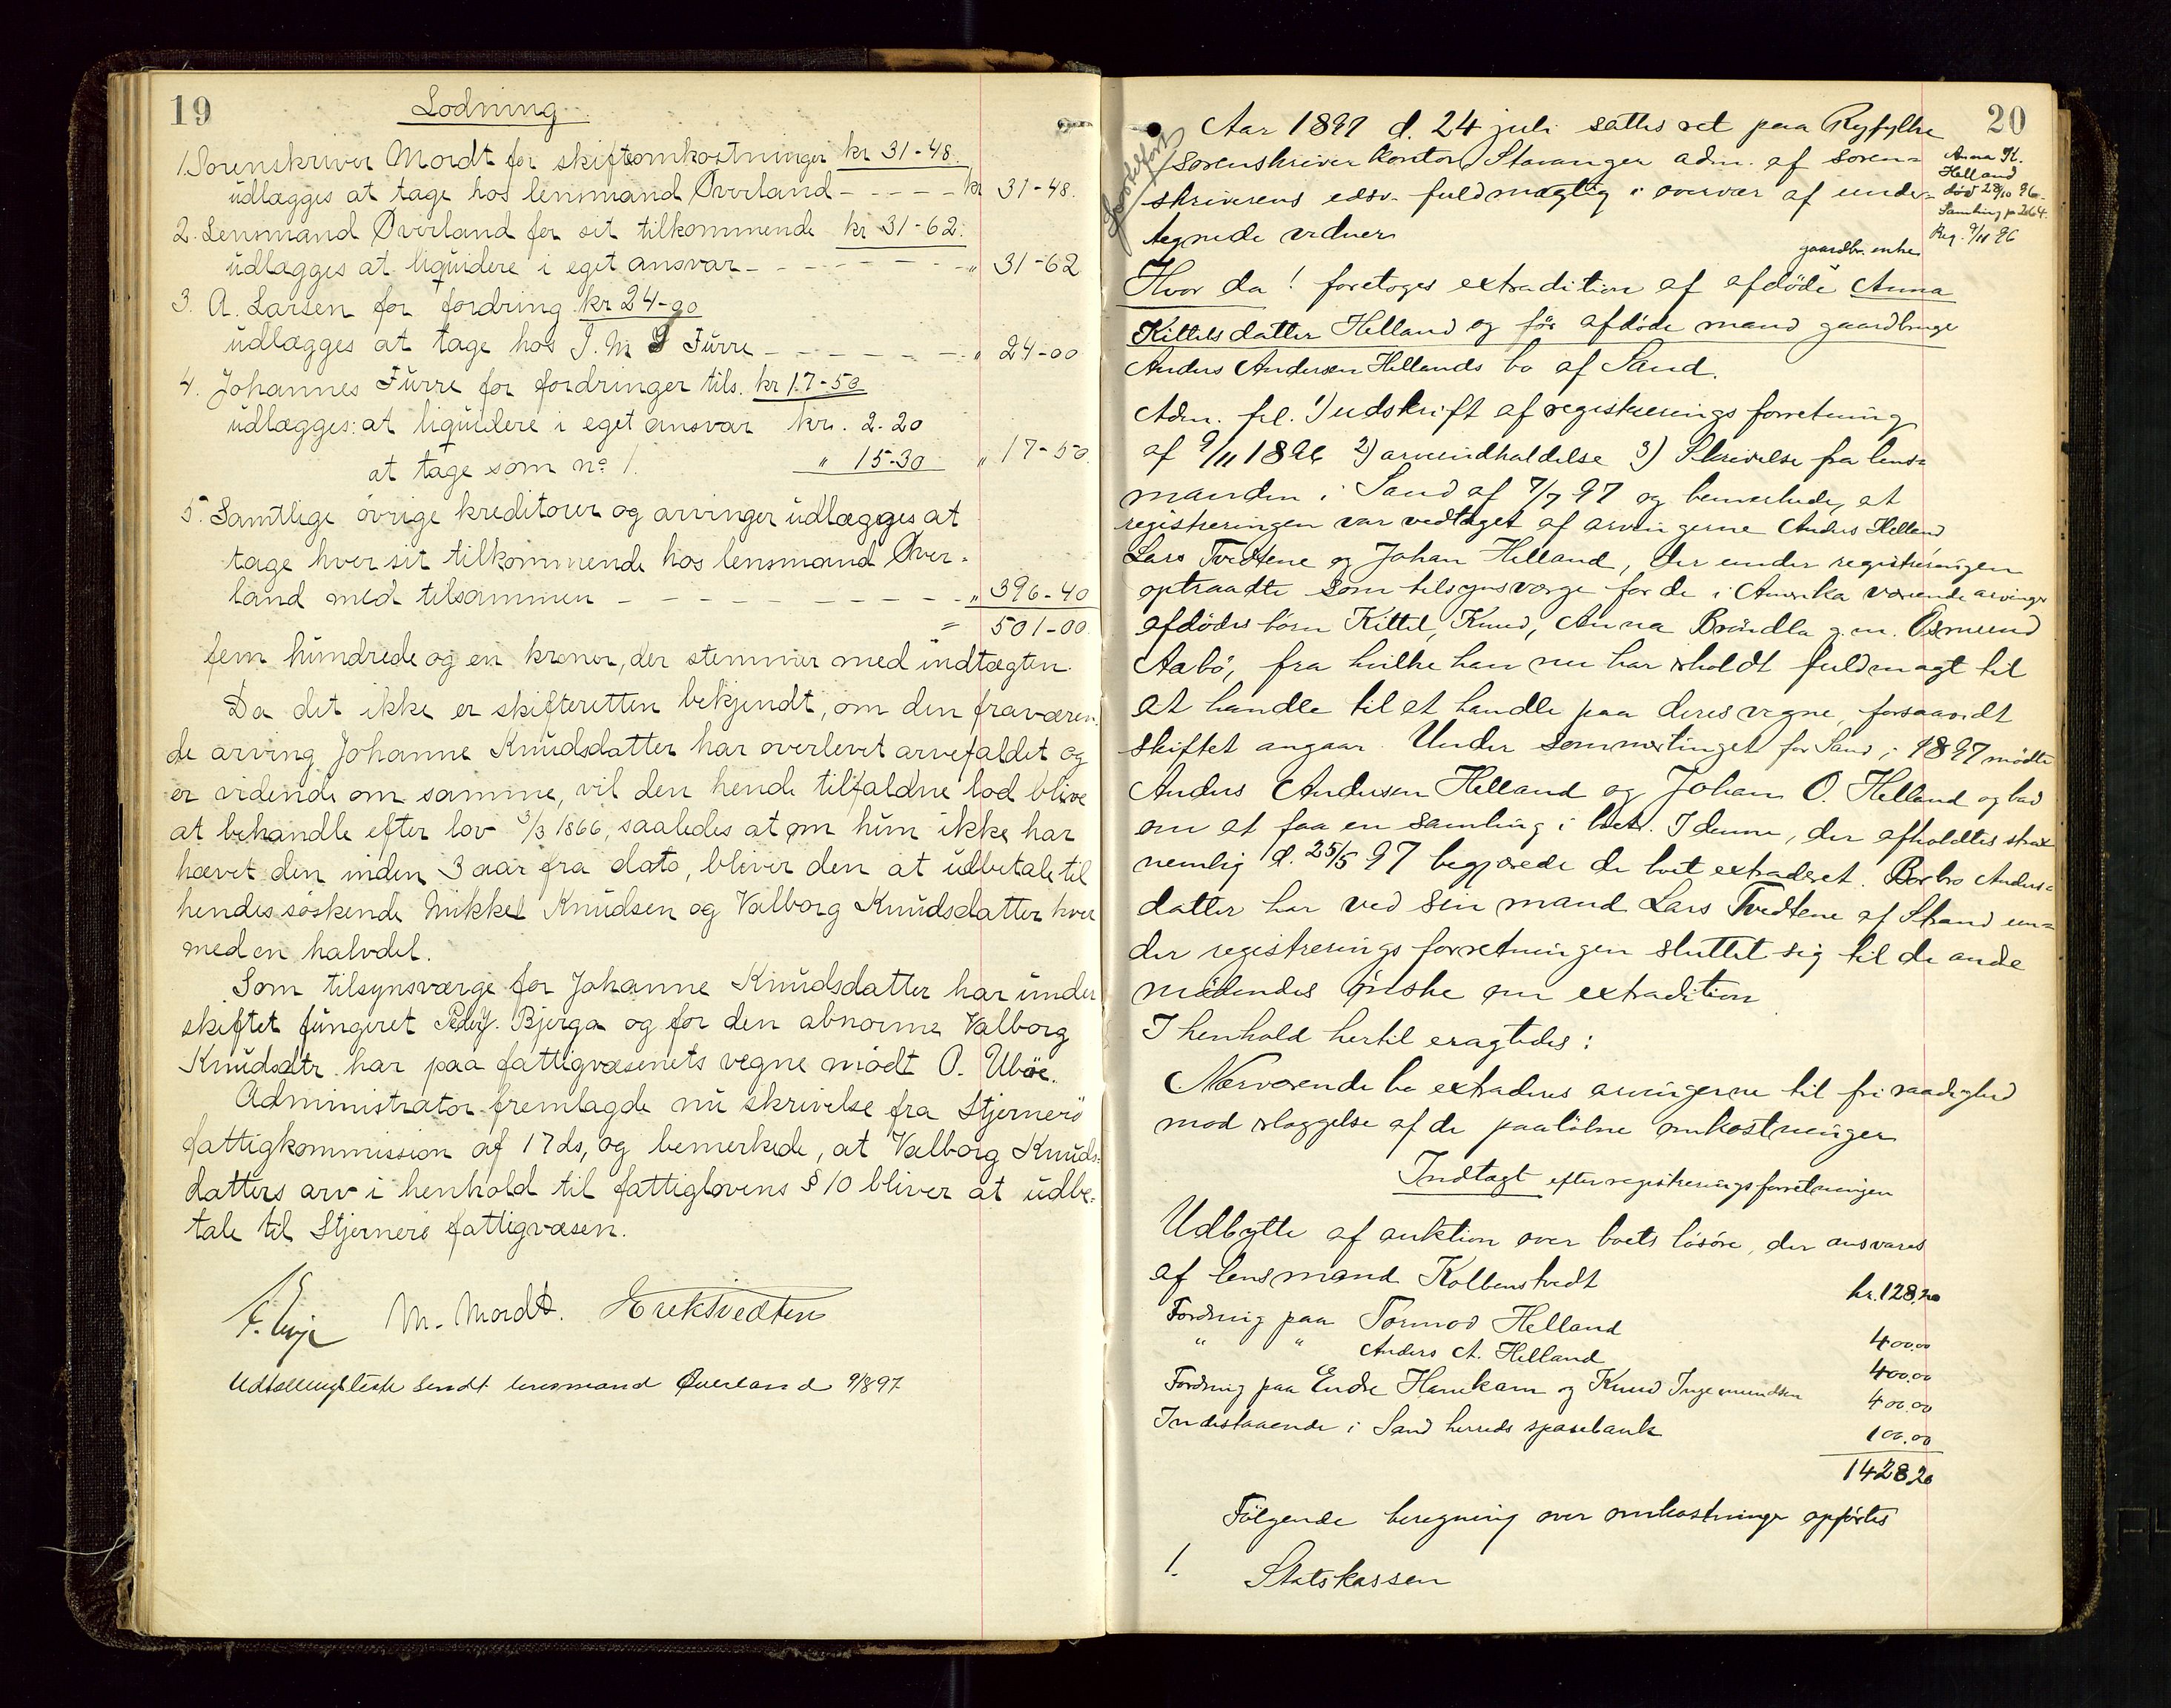 19
Lodning
1. Sorenskriver Mordt for skifteomkostninger kr 31-48.
udlægges at tage hos lensmand Øverland - - - - kr 31-48.
2. Lensmand Øverland for sit tilkommende kr 31-62.
udlægges at liquidere i eget ansvar - - - - - - - " 31-62
3. A. Larsen for fordring kr 24-90
udlægges at tage hos J. M Furre - - - - - - " 24-00
4. Johannes Furre for fordringer tils. kr 17-50
udlægges: at liquidere i eget ansvar kr. 2.20
at tage som no 1. " 15-30 " 17-50.
5. Samtlige övrige kreditorer og arvinger udlægges at
tage hver sit tilkommende hos lensmand Øver-
land med tilsammen - - - - - - - - - " 396-40
= 501-00.
fem hundrede og en kroner, der stemmer med indtægten.
Da det ikke er skifteretten bekjendt, om den fraværen-
de arving Johanne Knudsdatter har overlevet arvefaldet og
er vidende om samme, vil den hende tilfaldne lod blive
at behandle efter lov 3/3 1866, saaledes at om hun ikke har
hævet den inden 3 aar fra dato, bliver den at udbetale til
hendes søskende Mikkel Knudsen og Valborg Knudsdatter hver
med en halvdel.
Som tilsynsværge for Johanne Knudsdatter har under
skiftet fungeret Peder J. Bjerga og for den abnorme Valborg
Knudsdtr. har paa fattigvæsenets vegne mödt O. Uböe.
Administrator fremlagde nu skrivelse fra Stjernerö
fattigkommission af 17 ds, og bemerkede, at Valborg Knuds-
datters arv i henhold til fattiglovens § 10 bliver at udbe-
tale til Stjernerö fattigvæsen.
M. Mordt. Erik Tvedten
Udtællingsliste sendt lensmand Øverland 9/8 97
20
Aar 1897 d. 24 juli sattes ret paa Ryfylke
sorenskriver kontor, Stavanger adm. af soren-
skriverens edsv. fuldmægtig i overvær af under-
tegnede vidner
Anna K.
Helland
död 28/10 96
Samling p 264.
Reg. 9/11 96
gaardbr. enke
Hvor da! foretoges extradition af afdöde Anna
Kittelsdatter Helland og för afdöde mand gaardbruger
Anders Andersen Hellands bo af Sand.
Adm. frl. 1) udskrift af registreringsforretning
af 9/11 1896 2) arveindkaldelse 3) Skrivelse fra lens-
manden i Sand af 7/7 97 og bemerkede, at
registreringen var vedtaget af arvingerne Anders Helland
Lars Tvedtene og Johan Helland, der under registreringen
optraadte som tilsynsværge for de i Amerika værende arvinger
afdödes börn Kittel, Knud, Anna Bröndla g.m. Osmund
Aabö, fra hvilke han nu har erholdt fuldmagt til
at handle til at handle paa deres vegne, forsaavidt
skiftet angaar. Under sommertinget for Sand i 1897 mödte
Anders Andersen Helland og Johan O. Helland og bad
om at faa en samling i boet. I denne, der afholdtes strax
nemlig d. 25/5 97 begjærede de boet extraderet. Barbro Anders-
datter har ved sin mand Lars Tvedtene af Strand un-
der registreringsforretningen sluttet sig til de ande
mödendes önske om extradition
I henhold hertil eragtedes:
Nærværende bo extraderes arvingerne til fri raadighed
mod erlæggelse af de paalöbne omkostninger
Indtægt efter registreringsforretningen
Udbytte af auktion over boets lösöre, der ansvares
af lensmand Kolbenstvedt kr. 128,20
Fordring paa Tormod Helland 400.00
" " Anders A. Helland 400.00
Fordring paa Endre Hamkam og Knud Ingemundsen 400.00
Indestaaende i Sand herreds sparebank 100.00
1428,20
Fölgende beregning over omkostninger opförtes
1. Statskassen